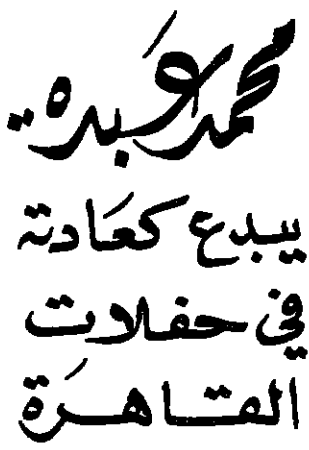 محمد عبده..
يبدع كعادته
في حفلات
القاهرة